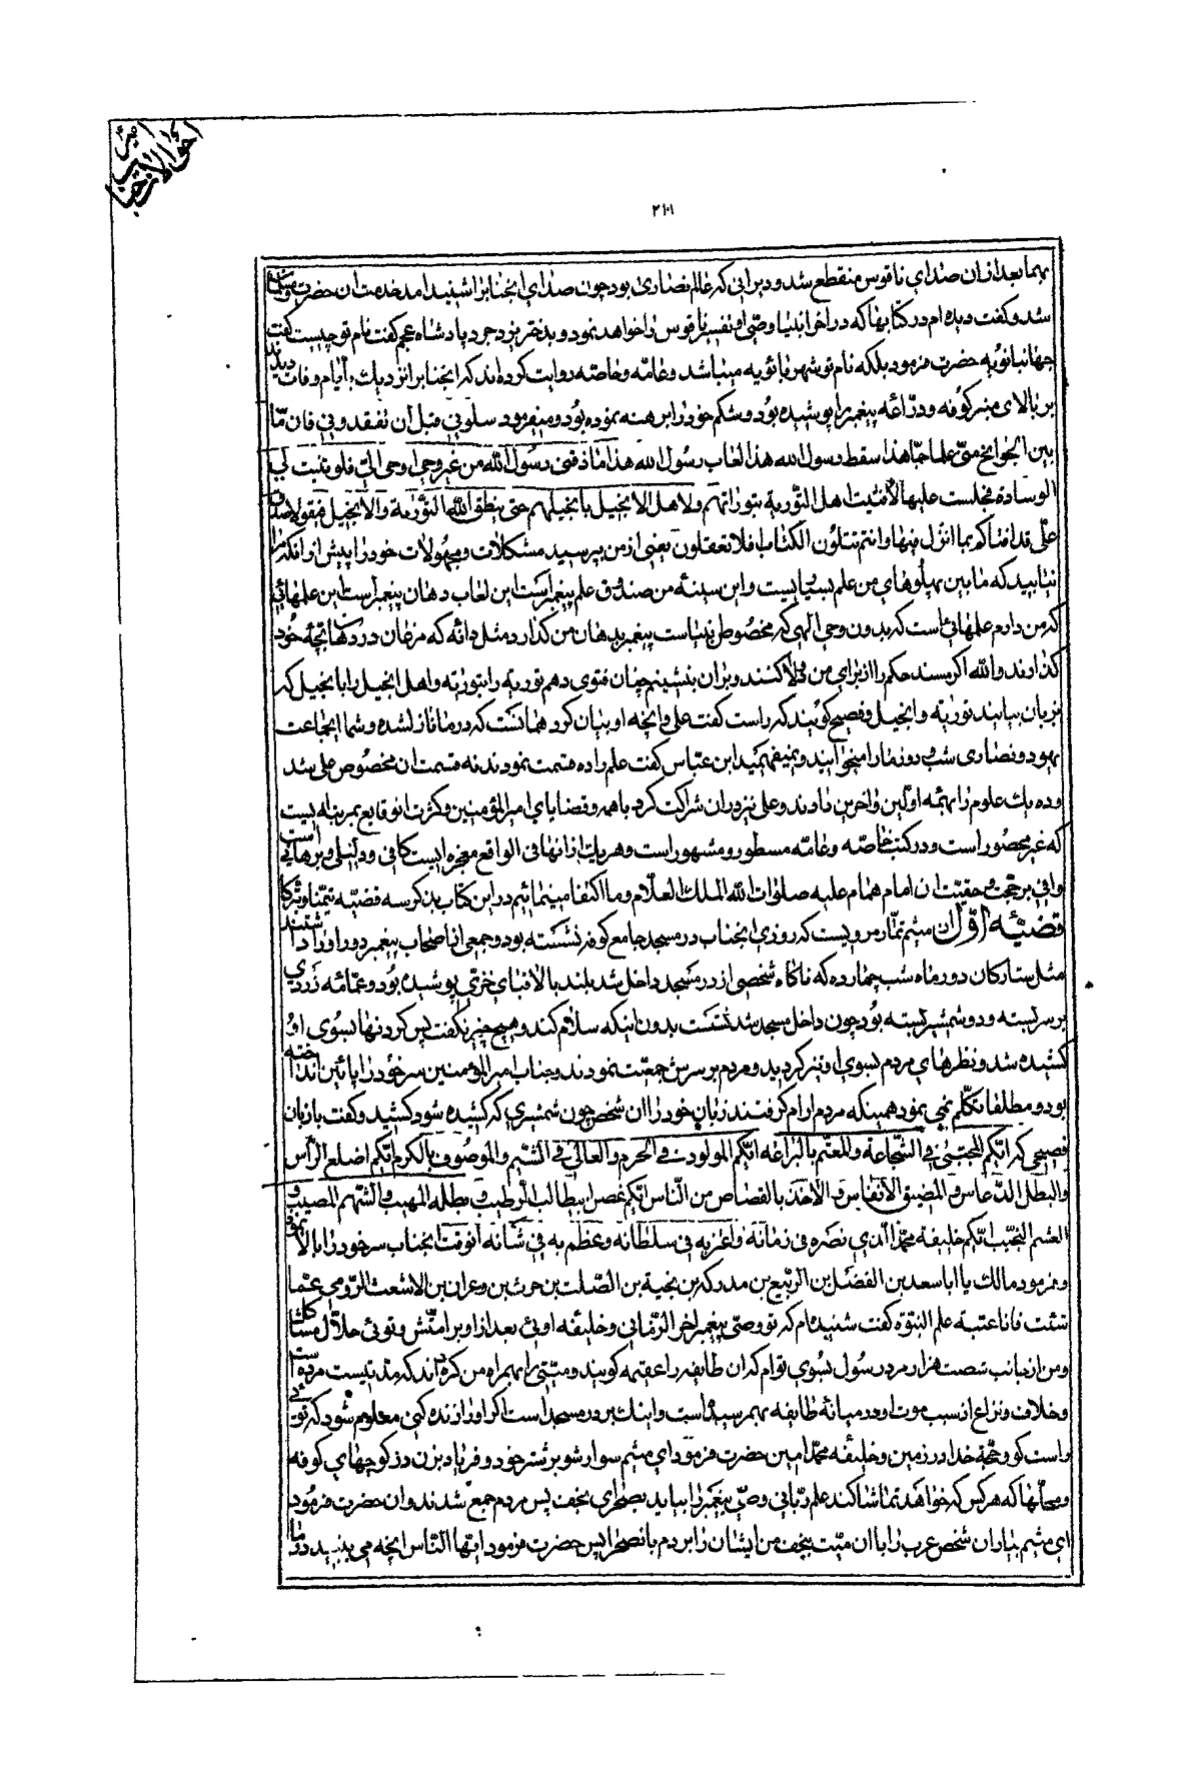 احوالات جناب امیر
۲۱۰۱
بهما بعد از ان صدای ناقوس منقطع شد و دیرانی که عالم نصاری بود چون صدای انجناب را شنید امد خدمت ان حضرت و مسلمان
شد و گفت دیده ام در کتابها که در اخر انبیا وصی او تفسیر ناقوس را خواهد نمود و بدختر یزدجرد پادشاه عجم گفت نام تو چیست گفت
جهانبانویه حضرت فرمود بلکه نام تو شهربانویه میباشد و عامه و خاصه روایت کرده اند که انجناب را نزدیک بایام وفات دیدند
بر بالای منبر کوفه و دراعه پیغمبر را پوشیده بود و شکم خود را برهنه نموده بود و میفرمود سلونی قبل ان تفقدونی فان ما
بین الجوانح منی علما جما هذا سفط رسول الله هذا لعاب رسول الله هذا ما زقنی رسول الله من غیر وحی اوحی الی فلو ثنیت لی
الوسادة فجلست علیها لافتیت اهل التوریة بتوراتهم ولاهل الانجیل بانجیلهم حتی ینطق الله التوریة والانجیل فیقولا صدق
علی قد افتاکم بما انزل فیها وانتم تتلون الکتاب افلا تعقلون یعنی از من بپرسید مشکلات و مجهولات خود را پیش از انکه مرا
نیابید که مابین پهلوهای من علم بسیاریست و این سینه من صندوق علم پیغمبر است این لعاب دهان پیغمبر است این علمهائی
که من دارم علمهائی است که بدون وحی الهی که مخصوص نبی است پیغمبر بدهان من گذارد مثل دانه که مرغان در دهان بچه خود
گذارند والله اگر مسند حکم را از برای من دولا کنند و بران بنشینم چنان فتوی دهم توریه را بتوریه و اهل انجیل را بانجیل که
بزبان بیایند توریة و انجیل و فصیح گویند که راست گفت علی و انچه او بیان کرد همانست که در ما نازل شده و شما ایجماعت
یهود و نصاری شب و روز ما را میخوانید و نمیفهمید ابن عباس گفت علم را ده قسمت نمودند نه قسمت ان مخصوص علی شد
و ده یک علوم را بهمه اولین و اخرین دادند و علی نیز در ان شراکت کرد با همه و قضایای امیرالمؤمنین و کثرت انوقایع بمرتبه ایست
که غیر محصور است و در کتب خاصه و عامه مسطور و مشهور است و هر یک از انها فی الواقع معجزه ایست کافی و دلیلی و برهانی است
وافی بر حجت و حقیت ان امام همام علیه صلوات الله الملک العلام و ما اکتفا مینمائیم در این کتاب بذکر سه قضیه تیمنا و تبرکا
قضیه اول از میثم تمار مرویست که روزی انجناب در مسجد جامع کوفه نشسته بود و جمعی از اصحاب پیغمبر دور او را داشتند
مثل ستارگان دور ماه شب چهارده که ناگاه شخصی از در مسجد داخل شد بلند بالا قبای خزی پوشیده بود و عمامه زردی
بر سر بسته و دو شمشیر بسته بود چون داخل مسجد شد نشست بدون اینکه سلام کند و هیچ چیز نگفت پس گردنها بسوی او
کشیده شد و نظرهای مردم بسوی او تیز گردید و مردم بر سرش جمعیت نمودند و جناب امیرالمومنین سر خود را پائین انداخته
بود و مطلقا تکلم نمی نمود همینکه مردم ارام گرفتند زبان خود را ان شخص چون شمشیری که کشیده شود کشید و گفت بزبان
فصیحی که ایکم المجتبی فی الشجاعة والمعتم بالبراعه ایکم المولود فی الحرم والعالی فی الشیم والموصوف بالکرم ایکم اصلع الراس
والبطل الدعاس والمضیق الانفاس والاخذ بالقصاص من الناس ایکم غصن ابیطالب الرطیب وبطله المهیب والسهم المصیب و
القسم النجیب ایکم خلیفة محمد الذی نصره فی زمانه واعز به فی سلطانه وعظم به فی شانه انوقت انجناب سر خود را بالا نمود
و فرمود مالک یا ابا سعد بن الفضل بن الربیع بن مدرکه بن نجیة بن الصلت بن حرث بن وعران بن الاشعث الرومی عما
شئت فانا عتبة علم النبوة گفت شنیده ام که تو وصی پیغمبر اخر الزمانی و خلیفه اوئی بعد از او بر امتش و توئی حلال مشکلات
و من از جانب شصت هزار مرد رسول بسوی تو ام که ان طایفه را عقیمه گویند و میتی را بهمراه من کرده اند که مدتیست مرده است
و خلاف و نزاع از سبب موت او در میانه طایفه بهم رسیده است و اینک بر در مسجد است اگر او را زنده کنی معلوم شود که توئی
راست گو و حجة خدا در زمین و خلیفه محمد امین حضرت فرمود ای میثم سوار شو بر شتر خود و فریاد بزن در کوچهای کوفه
و محلها که هر کس که خواهد تماشا کند علم ربانی وصی پیغمبر را بیاید بصحرای نجف پس مردم جمع شدند و ان حضرت فرمود
ای میثم بیار ان شخص عرب را با ان میت بنجف من ایشان را بردم بانصحرا پس حضرت فرمود ایها الناس انچه می بینید از ما